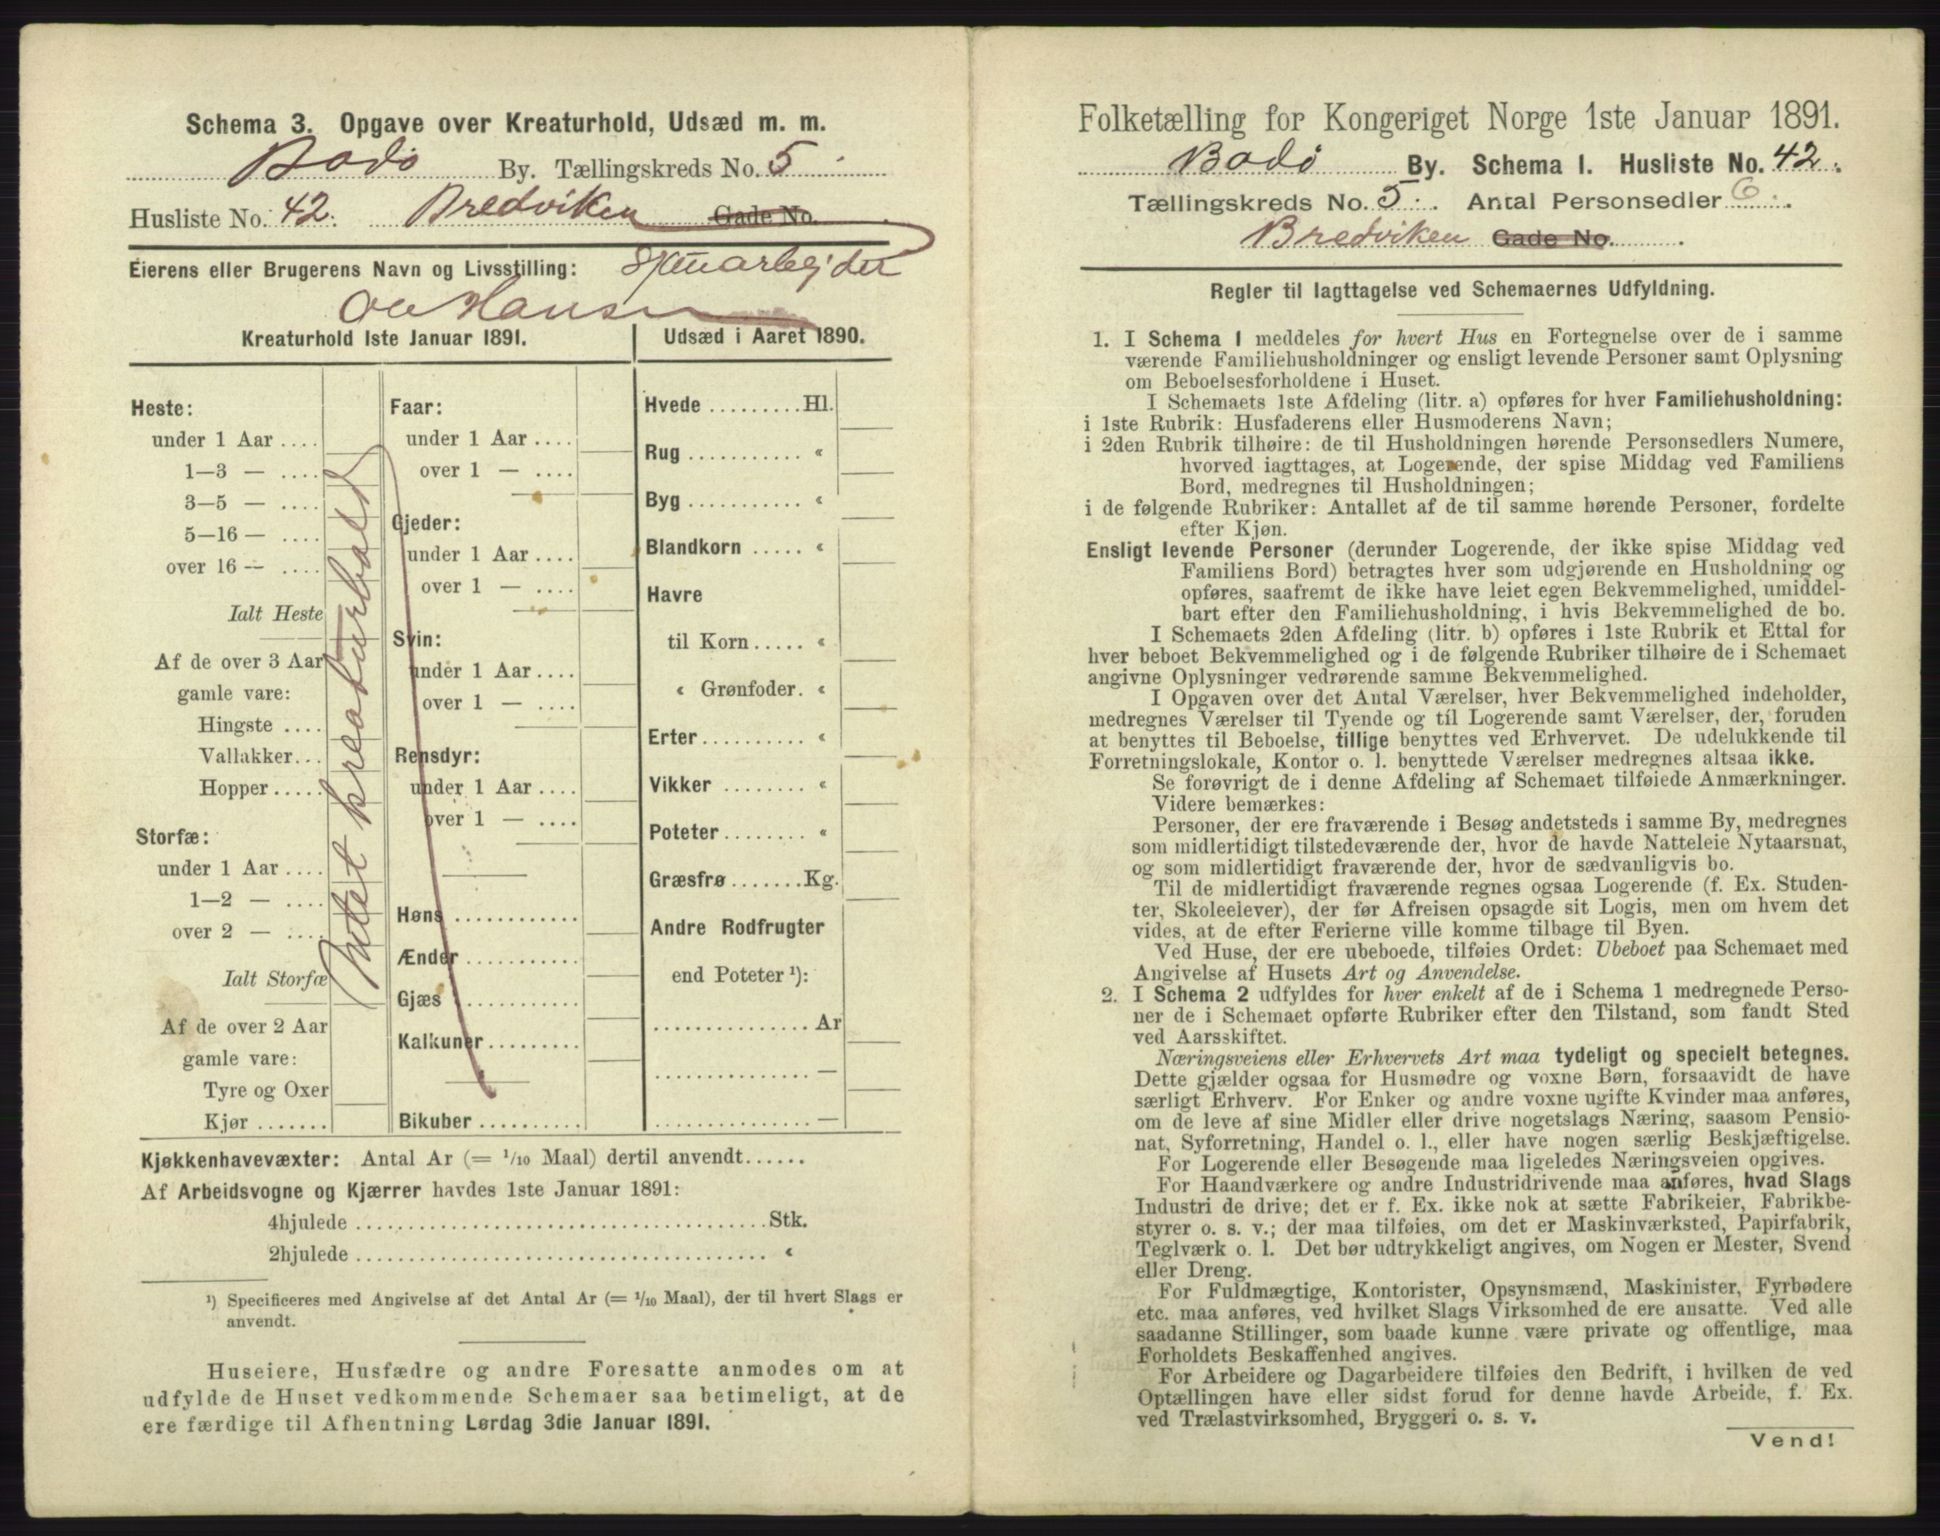 Schema 3. Opgave over Kreaturhold, Udsæd m. m.
Bodø By. Tællingskreds No. 5.
Husliste No. 42. Bredviken Gade No.
Eierens eller Brugerens Navn og Livsstilling:
Ole Hansen
Kreaturhold 1ste Januar 1891.
Heste:
under 1 Aar ....
1—3 — ....
3—5 — ....
5—16 — ....
over 16 — ....
Ialt Heste
Af de over 3 Aar
gamle vare:
Hingste ....
Vallakker...
Hopper.....
Storfæ:
under 1 Aar....
1—2 — ....
over 2 — ....
Ialt Storfæ
Af de over 2 Aar
gamle vare:
Tyre og Oxer
Kjør .......
Intet kreaturhold
Faar:
under 1 Aar....
over 1 — ....
Gjeder:
under 1 Aar....
over 1 — ....
Svin:
under 1 Aar....
over 1 — ....
Rensdyr:
under 1 Aar....
over 1 — ....
Høns ...........
Ænder..........
Gjæs ...........
Kalkuner.........
Bikuber ..........
Udsæd i Aaret 1890.
Hvede .........Hl.
Rug ........... «
Byg ........... «
Blandkorn ..... «
Havre
til Korn ..... «
« Grønfoder. «
Erter.......... «
Vikker ........ «
Poteter ........ «
Græsfrø.......Kg.
Andre Rodfrugter
end Poteter ¹):
...............Ar
............... —
............... —
Kjøkkenhavevæxter: Antal Ar (= ¹/₁₀ Maal) dertil anvendt......
Af Arbeidsvogne og Kjærrer havdes 1ste Januar 1891:
4hjulede ......................................Stk.
2hjulede ...................................... «
¹) Specificeres med Angivelse af det Antal Ar (= ¹/₁₀ Maal), der til hvert Slags er
anvendt.
Huseiere, Husfædre og andre Foresatte anmodes om at
udfylde de Huset vedkommende Schemaer saa betimeligt, at de
ere færdige til Afhentning Lørdag 3die Januar 1891.
Folketælling for Kongeriget Norge 1ste Januar 1891.
Bodø By. Schema I. Husliste No. 42.
Tællingskreds No. 5. Antal Personsedler 6.
Bredviken Gade No.
Regler til Iagttagelse ved Schemaernes Udfyldning.
1. I Schema 1 meddeles for hvert Hus en Fortegnelse over de i samme
værende Familiehusholdninger og ensligt levende Personer samt Oplysning
om Beboelsesforholdene i Huset.
I Schemaets 1ste Afdeling (litr. a) opføres for hver Familiehusholdning:
i 1ste Rubrik: Husfaderens eller Husmoderens Navn;
i 2den Rubrik tilhøire: de til Husholdningen hørende Personsedlers Numere,
hvorved iagttages, at Logerende, der spise Middag ved Familiens
Bord, medregnes til Husholdningen;
i de følgende Rubriker: Antallet af de til samme hørende Personer, fordelte
efter Kjøn.
Ensligt levende Personer (derunder Logerende, der ikke spise Middag ved
Familiens Bord) betragtes hver som udgjørende en Husholdning og
opføres, saafremt de ikke have leiet egen Bekvemmelighed, umiddel-
bart efter den Familiehusholdning, i hvis Bekvemmelighed de bo.
I Schemaets 2den Afdeling (litr. b) opføres i 1ste Rubrik et Ettal for
hver beboet Bekvemmelighed og i de følgende Rubriker tilhøire de i Schemaet
angivne Oplysninger vedrørende samme Bekvemmelighed.
I Opgaven over det Antal Værelser, hver Bekvemmelighed indeholder,
medregnes Værelser til Tyende og til Logerende samt Værelser, der, foruden
at benyttes til Beboelse, tillige benyttes ved Erhvervet. De udelukkende til
Forretningslokale, Kontor o. l. benyttede Værelser medregnes altsaa ikke.
Se forøvrigt de i denne Afdeling af Schemaet tilføiede Anmærkninger.
Videre bemærkes:
Personer, der ere fraværende i Besøg andetsteds i samme By, medregnes
som midlertidigt tilstedeværende der, hvor de havde Natteleie Nytaarsnat,
og som midlertidigt fraværende der, hvor de sædvanligvis bo.
Til de midlertidigt fraværende regnes ogsaa Logerende (f. Ex. Studen-
ter, Skoleelever), der før Afreisen opsagde sit Logis, men om hvem det
vides, at de efter Ferierne ville komme tilbage til Byen.
Ved Huse, der ere ubeboede, tilføies Ordet: Ubeboet paa Schemaet med
Angivelse af Husets Art og Anvendelse.
2. I Schema 2 udfyldes for hver enkelt af de i Schema 1 medregnede Perso-
ner de i Schemaet opførte Rubriker efter den Tilstand, som fandt Sted
ved Aarsskiftet.
Næringsveiens eller Erhvervets Art maa tydeligt og specielt betegnes.
Dette gjælder ogsaa for Husmødre og voxne Børn, forsaavidt de have
særligt Erhverv. For Enker og andre voxne ugifte Kvinder maa anføres,
om de leve af sine Midler eller drive nogetslags Næring, saasom Pensio-
nat, Syforretning, Handel o. l., eller have nogen særlig Beskjæftigelse.
For Logerende eller Besøgende maa ligeledes Næringsveien opgives.
For Haandværkere og andre Industridrivende maa anføres, hvad Slags
Industri de drive; det er f. Ex. ikke nok at sætte Fabrikeier, Fabrikbe-
styrer o. s. v.; der maa tilføies, om det er Maskinværksted, Papirfabrik,
Teglværk o. l. Det bør udtrykkeligt angives, om Nogen er Mester, Svend
eller Dreng.
For Fuldmægtige, Kontorister, Opsynsmænd, Maskinister, Fyrbødere
etc. maa anføres, ved hvilket Slags Virksomhed de ere ansatte. Ved alle
saadanne Stillinger, som baade kunne være private og offentlige, maa
Forholdets Beskaffenhed angives.
For Arbeidere og Dagarbeidere tilføies den Bedrift, i hvilken de ved
Optællingen have eller sidst forud for denne havde Arbeide, f. Ex.
ved Trælastvirksomhed, Bryggeri o. s. v.
Vend!